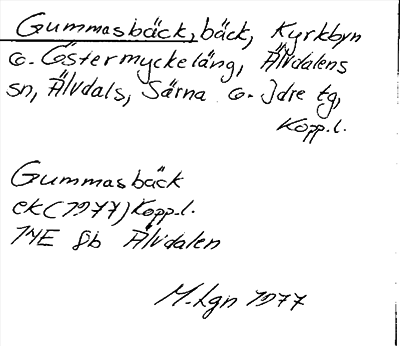 Gummasbäck, bäck, Kyrkbyn
o. Östermyckeläng, Älvdalens
sn, Älvdals, Särna o. Idre tg,
Kopp.l.
Gummasbäck
ek (1977) Kopp.l.
14E 8b Älvdalen
M. Lgn 1977